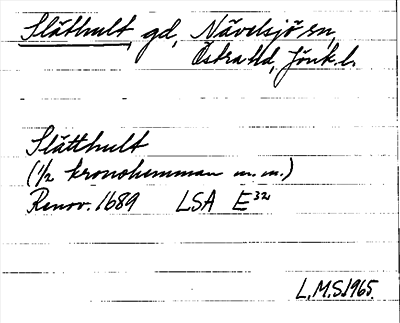 Släthult, gd, Nävelsjö sn,
Östra hd, Jönk. l.
Slätthult
(1/2 kronohemman m.m.)
Renov. 1689 LSA E32
L.M.S. 1965.